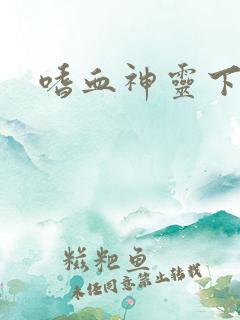 嗜血神靈下
糍粑鱼
未经同意禁止转载